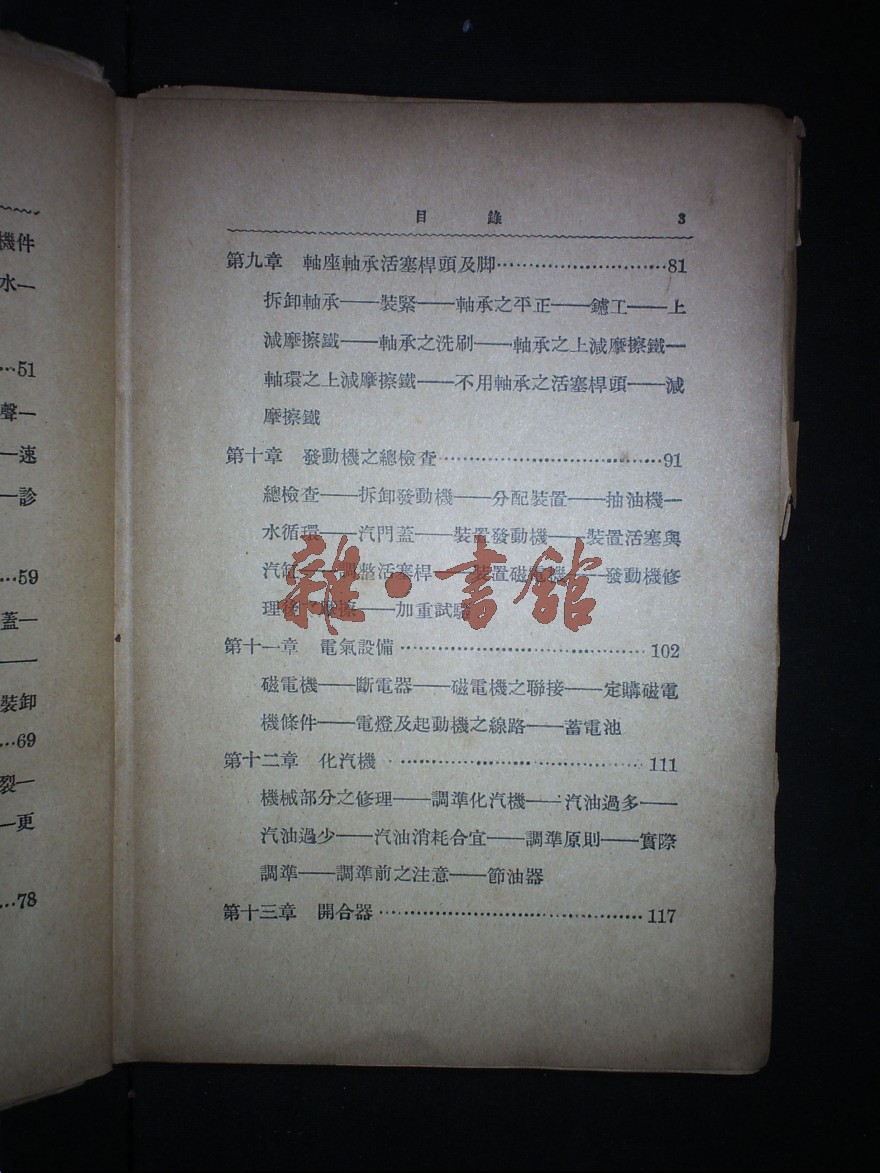 機件
水—
…51
聲—
—速
—診
…59
蓋—
——
裝卸
…69
裂—
—更
…78
目 錄 3
第九章 軸座軸承活塞桿頭及脚……………………81
拆卸軸承——裝緊——軸承之平正——鑢工——上
減摩擦鐵——軸承之洗刷——軸承之上減摩擦鐵—
軸環之上減摩擦鐵——不用軸承之活塞桿頭——減
摩擦鐵
第十章 發動機之總檢查……………………91
總檢查——拆卸發動機——分配裝置——抽油機—
水循環——汽門蓋——裝置發動機——裝置活塞與
汽缸——調整活塞桿——裝置磁電機——發動機修
理後之摩擦——加重試驗
雜·書館
第十一章 電氣設備……………………102
磁電機——斷電器——磁電機之聯接——定購磁電
機條件——電燈及起動機之線路——蓄電池
第十二章 化汽機……………………111
機械部分之修理——調準化汽機——汽油過多——
汽油過少——汽油消耗合宜——調準原則——實際
調準——調準前之注意——節油器
第十三章 開合器……………………117